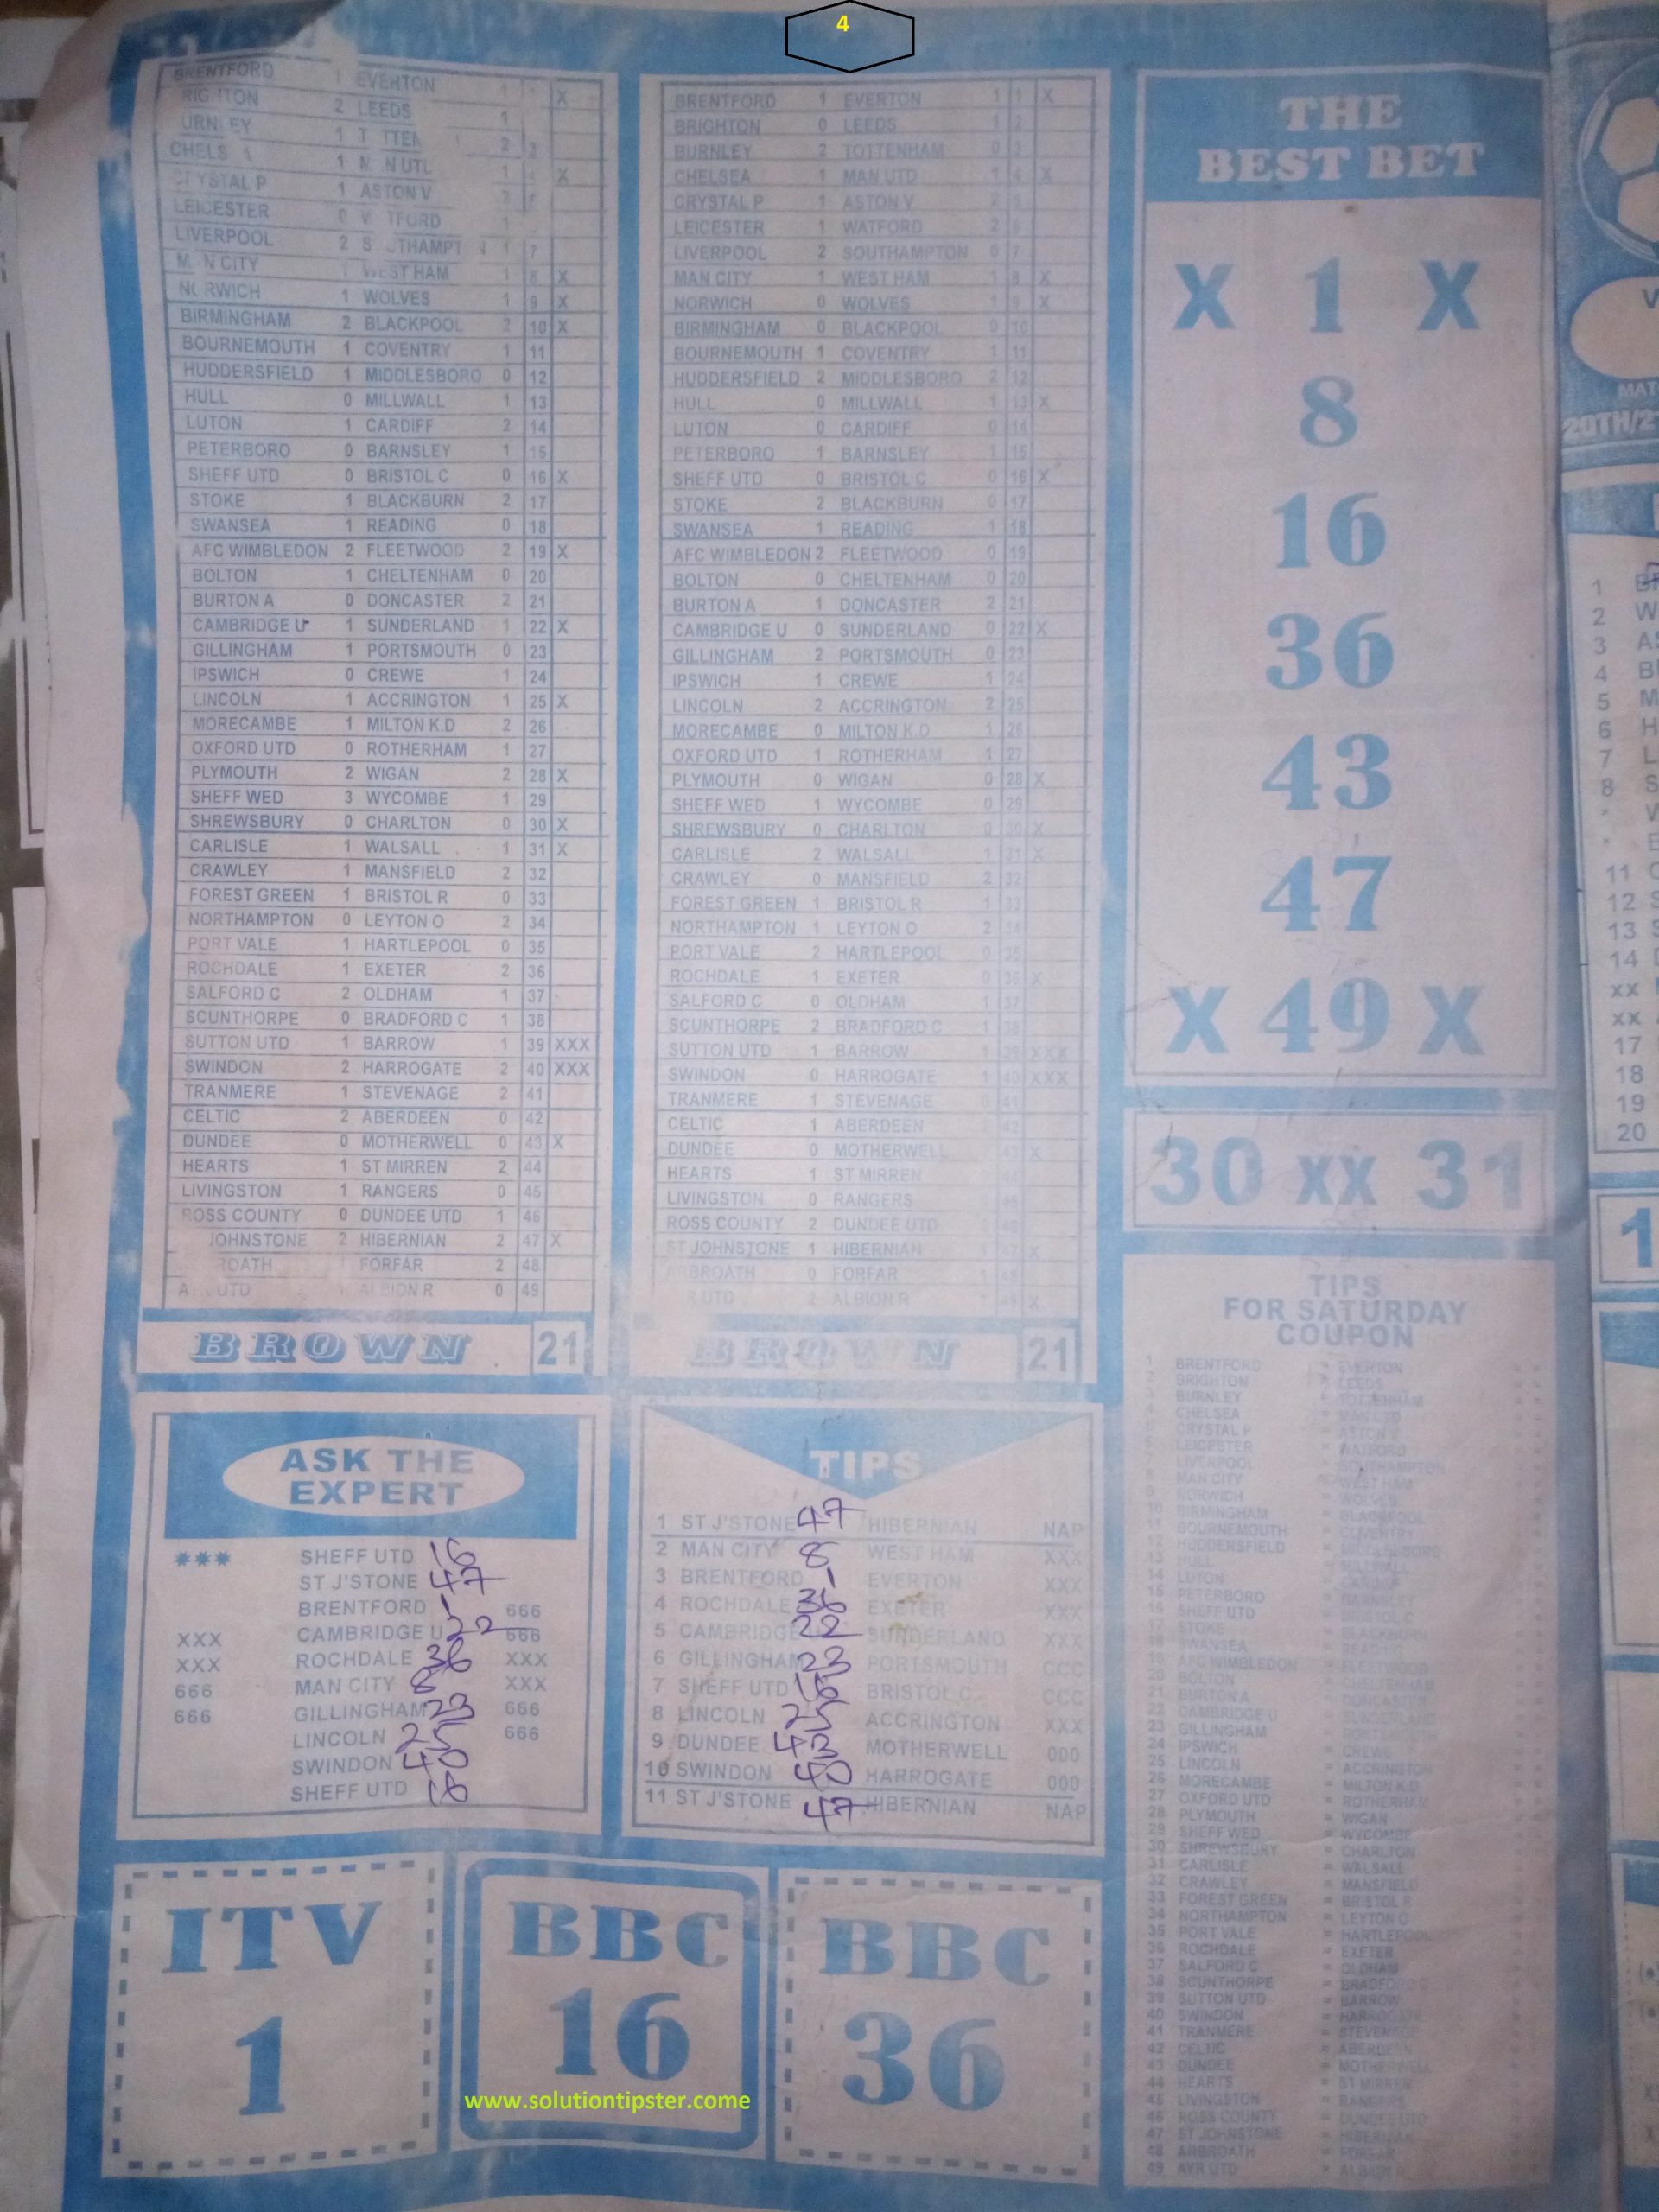 4
BRENTFORD 1 EVERTON 1 X
2 LEEDS 1
1
1 X
1 ASTON V 2
LEICESTER
LIVERPOOL 2 1 7
CITY WEST HAM 1 8 X
1 WOLVES 1 9 X
BIRMINGHAM 2 BLACKPOOL 2 10 X
BOURNEMOUTH 1 COVENTRY 1 11
HUDDERSFIELD 1 MIDDLESBORO 0 12
HULL 0 MILLWALL 1 13
LUTON 1 CARDIFF 2 14
PETERBORO 0 BARNSLEY 1 15
SHEFF UTD 0 BRISTOL C 0 16 X
STOKE 1 BLACKBURN 2 17
SWANSEA 1 READING 0 18
AFC WIMBLEDON 2 FLEETWOOD 2 19 X
BOLTON 1 CHELTENHAM 0 20
BURTON A 0 DONCASTER 2 21
CAMBRIDGE U 1 SUNDERLAND 1 22 X
GILLINGHAM 1 PORTSMOUTH 0 23
IPSWICH 0 CREWE 1 24
LINCOLN 1 ACCRINGTON 1 25 X
MORECAMBE 1 MILTON K.D 2 26
OXFORD UTD 0 ROTHERHAM 1 27
PLYMOUTH 2 WIGAN 2 28 X
SHEFF WED 3 WYCOMBE 1 29
SHREWSBURY 0 CHARLTON 0 30 X
CARLISLE 1 WALSALL 1 31 X
CRAWLEY 1 MANSFIELD 2 32
FOREST GREEN 1 BRISTOL R 0 33
NORTHAMPTON 0 LEYTON O 2 34
PORT VALE 1 HARTLEPOOL 0 35
ROCHDALE 1 EXETER 2 36
SALFORD C 2 OLDHAM 1 37
SCUNTHORPE 0 BRADFORD C 1 38
SUTTON UTD 1 BARROW 1 39 XXX
SWINDON 2 HARROGATE 2 40 XXX
TRANMERE 1 STEVENAGE 2 41
CELTIC 2 ABERDEEN 0 42
DUNDEE 0 MOTHERWELL 0 43 X
HEARTS 1 ST MIRREN 2 44
LIVINGSTON 1 RANGERS 0 45
ROSS COUNTY 0 DUNDEE UTD 1 46
JOHNSTONE 2 HIBERNIAN 2 47 X
FORFAR 2 48
UTD ALBION R 0 49
BROWN 21
BRENTFORD 1 EVERTON 1 1 X
BRIGHTON 0 LEEDS 1 2
BURNLEY 2 TOTTENHAM 0 3
CHELSEA 1 MAN UTD 1 4 X
CRYSTAL P 1 ASTON V 2 5
LEICESTER 1 WATFORD 2 6
LIVERPOOL 2 SOUTHAMPTON 0 7
MAN CITY 1 WEST HAM 1 8 X
NORWICH 0 WOLVES 1 9 X
BIRMINGHAM 0 BLACKPOOL 0 10
BOURNEMOUTH 1 COVENTRY 1 11
HUDDERSFIELD 2 MIDDLESBORO 2 12
HULL 0 MILLWALL 1 13 X
LUTON 0 CARDIFF 0 14
PETERBORO 1 BARNSLEY 1 15
SHEFF UTD 0 BRISTOL C 0 16 X
STOKE 2 BLACKBURN 0 17
SWANSEA 1 READING 1 18
AFC WIMBLEDON 2 FLEETWOOD 0 19
BOLTON 0 CHELTENHAM 0 20
BURTON A 1 DONCASTER 2 21
CAMBRIDGE U 0 SUNDERLAND 0 22 X
GILLINGHAM 2 PORTSMOUTH 0 23
IPSWICH 1 CREWE 1 24
LINCOLN 2 ACCRINGTON 2 25
MORECAMBE 0 MILTON K.D 1 26
OXFORD UTD 1 ROTHERHAM 1 27
PLYMOUTH 0 WIGAN 0 28 X
SHEFF WED 1 WYCOMBE 0 29
SHREWSBURY 0 CHARLTON 0 30 X
CARLISLE 2 WALSALL 1 31 X
CRAWLEY 0 MANSFIELD 2 32
FOREST GREEN 1 BRISTOL R 1 33
NORTHAMPTON 1 LEYTON O 2 34
PORT VALE 2 HARTLEPOOL 0 35
ROCHDALE 1 EXETER 0 36 X
SALFORD C 0 OLDHAM 1 37
SCUNTHORPE 2 BRADFORD C 1 38
SUTTON UTD 1 BARROW 1 39 XXX
SWINDON 0 HARROGATE 1 40 XXX
TRANMERE 1 STEVENAGE 41
CELTIC 1 ABERDEEN 42
DUNDEE 0 MOTHERWELL 43 X
HEARTS 1 ST MIRREN
LIVINGSTON 0 RANGERS
ROSS COUNTY 2 DUNDEE UTD
ST JOHNSTONE 1 HIBERNIAN X
0 FORFAR 1
UTD 2 ALBION R X
BROWN 21
THE
BEST BET
X 1 X
8
16
36
43
47
X 49 X
30 XX 31
ASK THE
EXPERT
*** SHEFF UTD 16
ST J'STONE 47
BRENTFORD 1 666
XXX CAMBRIDGE U 22 666
XXX ROCHDALE 36 XXX
666 MAN CITY 8 XXX
666 GILLINGHAM 23 666
LINCOLN 25 666
SWINDON 40
SHEFF UTD 16
TIPS
1 ST J'STONE 47 HIBERNIAN NAP
2 MAN CITY 8 WEST HAM XXX
3 BRENTFORD 1 EVERTON XXX
4 ROCHDALE 36 EXETER XXX
5 CAMBRIDGE 22 SUNDERLAND XXX
6 GILLINGHAM 23 PORTSMOUTH CCC
7 SHEFF UTD 16 BRISTOL C CCC
8 LINCOLN 25 ACCRINGTON XXX
9 DUNDEE 43 MOTHERWELL 000
10 SWINDON 40 HARROGATE 000
11 ST J'STONE 47 HIBERNIAN NAP
TIPS
FOR SATURDAY
COUPON
1 BRENTFORD = EVERTON
2 BRIGHTON = LEEDS
3 BURNLEY = TOTTENHAM
CHELSEA
CRYSTAL P
LEICESTER = WATFORD
LIVERPOOL = SOUTHAMPTON
MAN CITY = WEST HAM
NORWICH = WOLVES
10 BIRMINGHAM = BLACKPOOL
11 BOURNEMOUTH = COVENTRY
12 HUDDERSFIELD
13 HULL
14 LUTON
15 PETERBORO
16 SHEFF UTD
17 STOKE
18 SWANSEA
19 AFC WIMBLEDON = FLEETWOOD
20 BOLTON = CHELTENHAM
21 BURTON A = DONCASTER
22 CAMBRIDGE U = SUNDERLAND
23 GILLINGHAM = PORTSMOUTH
24 IPSWICH = CREWE
25 LINCOLN = ACCRINGTON
26 MORECAMBE = MILTON K.D
27 OXFORD UTD = ROTHERHAM
28 PLYMOUTH = WIGAN
29 SHEFF WED = WYCOMBE
30 SHREWSBURY = CHARLTON
31 CARLISLE = WALSALL
32 CRAWLEY = MANSFIELD
33 FOREST GREEN = BRISTOL R
34 NORTHAMPTON = LEYTON O
35 PORT VALE = HARTLEPOOL
36 ROCHDALE = EXETER
37 SALFORD C = OLDHAM
38 SCUNTHORPE = BRADFORD C
39 SUTTON UTD = BARROW
40 SWINDON = HARROGATE
41 TRANMERE = STEVENAGE
42 CELTIC = ABERDEEN
43 DUNDEE = MOTHERWELL
44 HEARTS = ST MIRREN
45 LIVINGSTON = RANGERS
46 ROSS COUNTY = DUNDEE UTD
47 ST JOHNSTONE = HIBERNIAN
48 ARBROATH = FORFAR
49 AYR UTD = ALBION R
ITV
1
BBC
16
BBC
36
www.solutiontipster.come
MAT
20TH/2
1
2 W
3 A
4 B
5 M
6 H
7 L
8 S
11
12 S
13
14
XX
XX
17
18
19
20
1